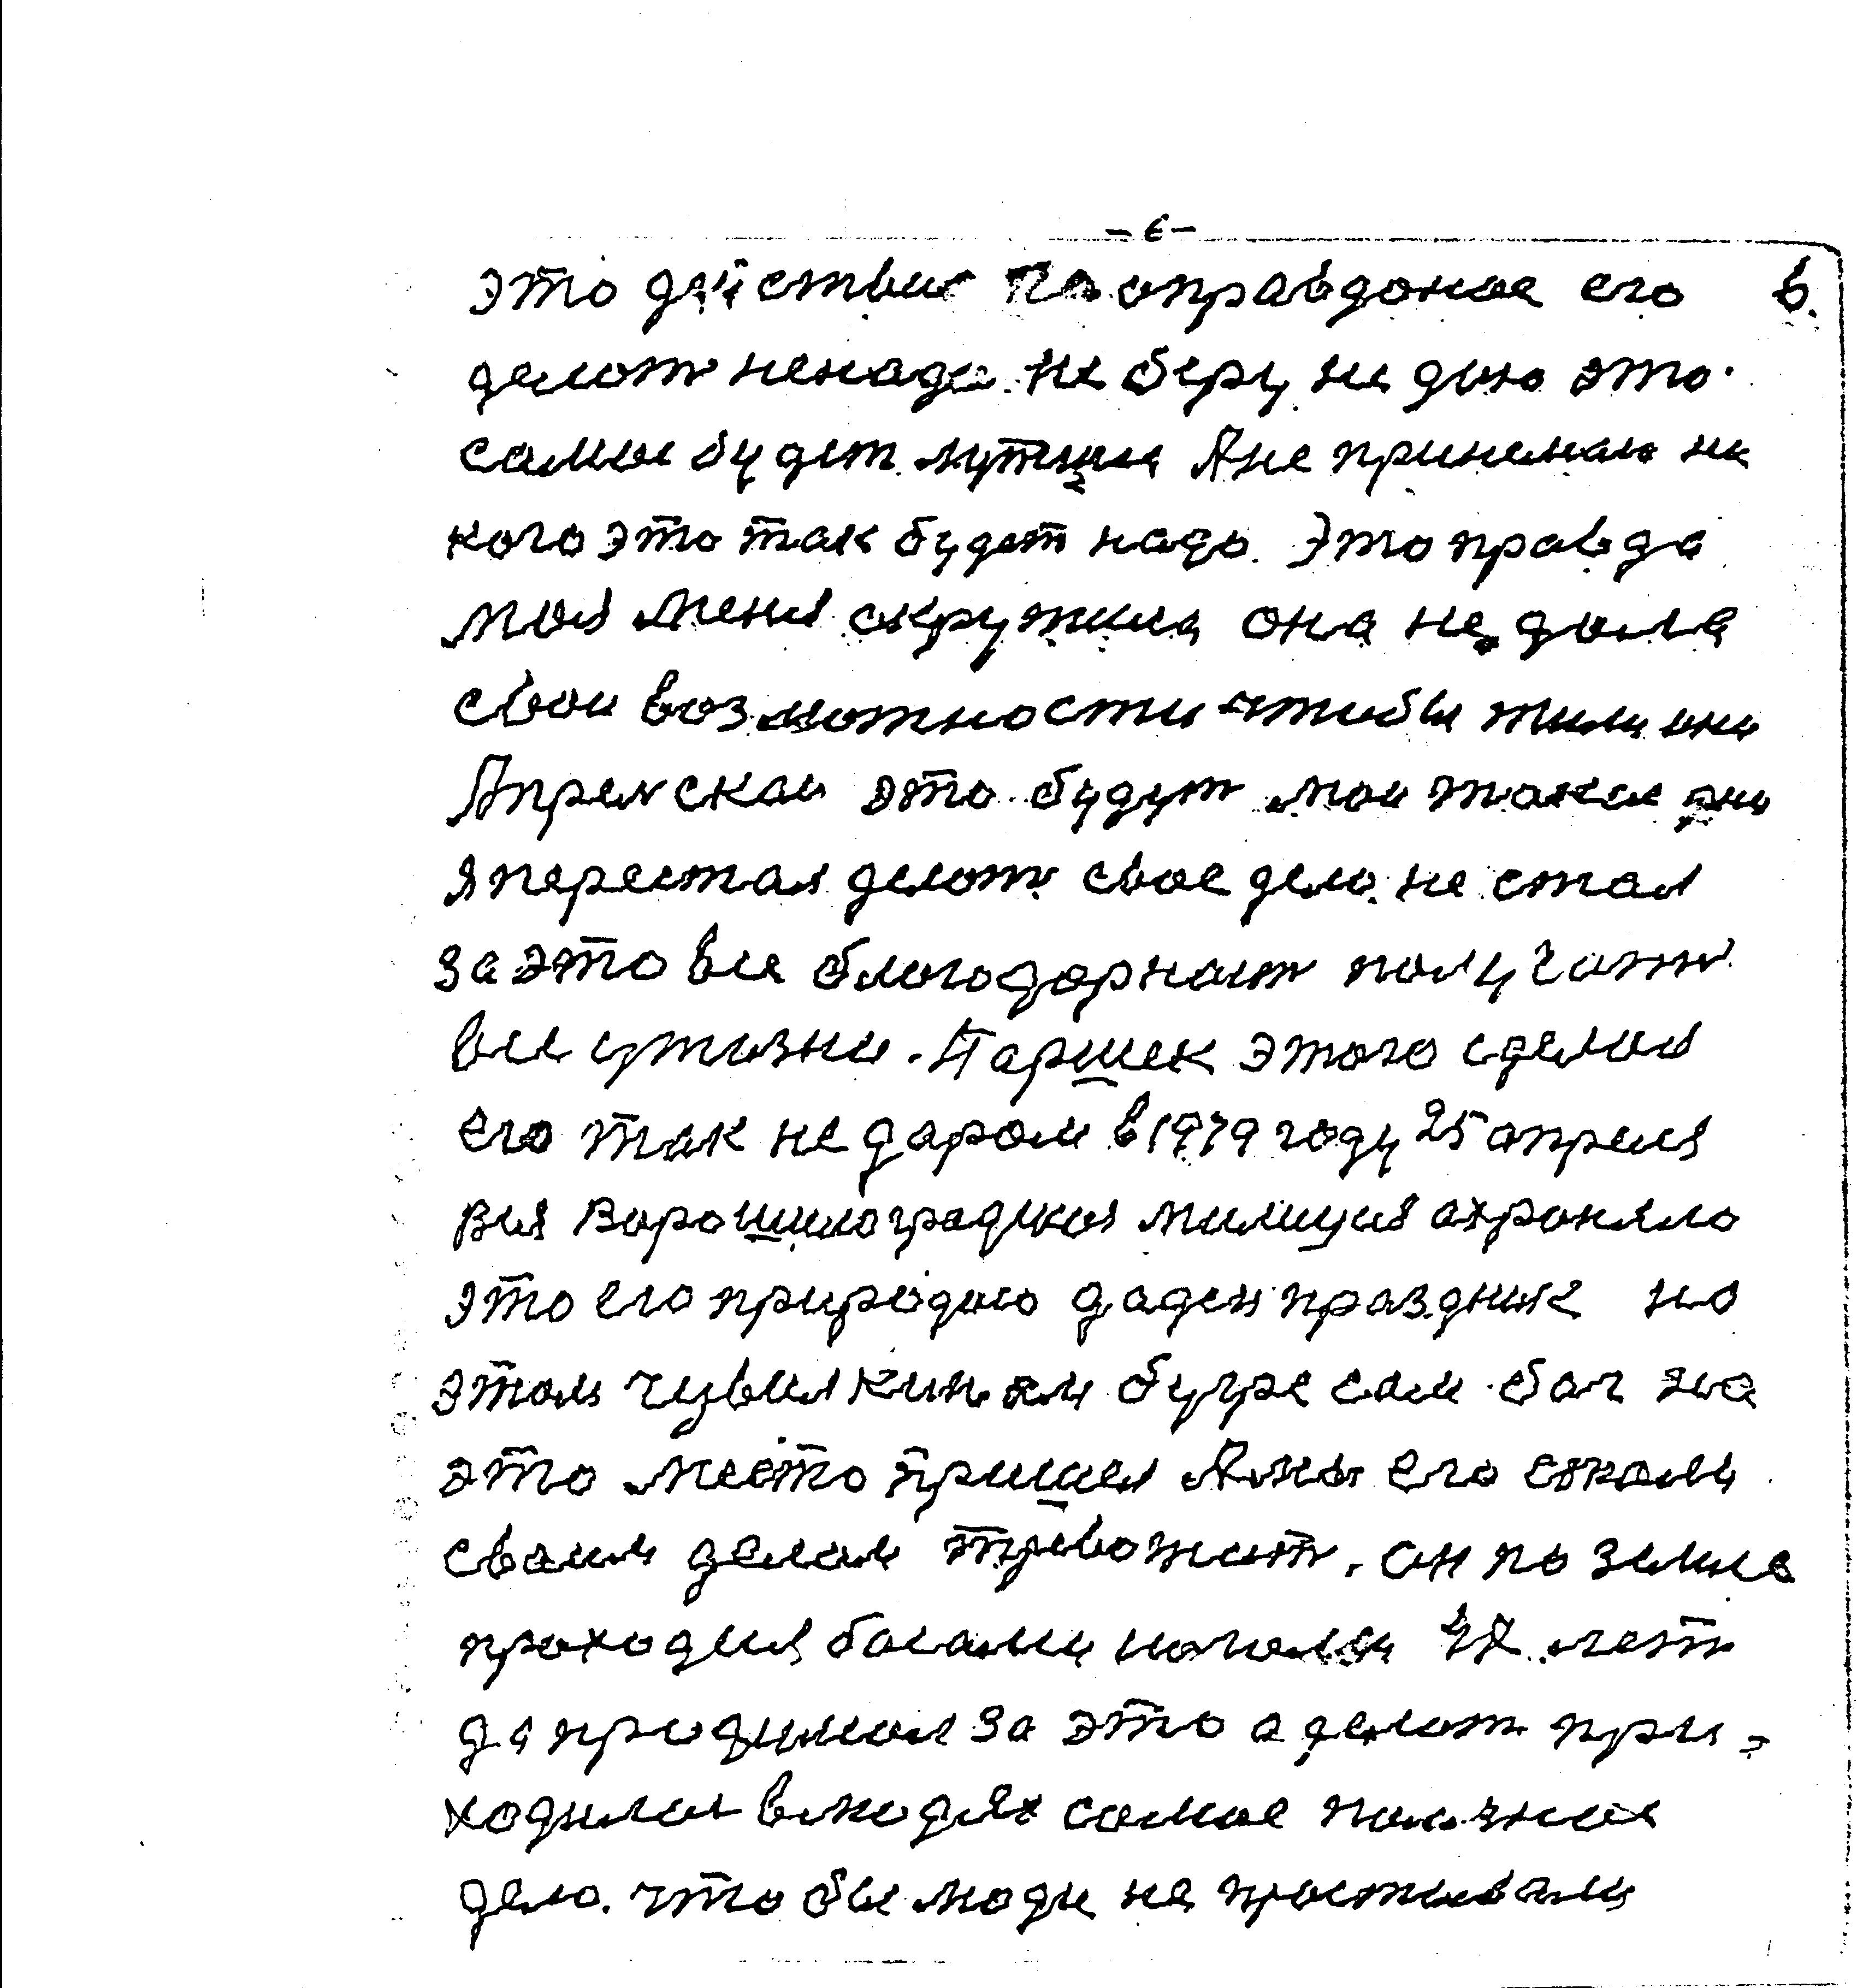 - 6 -
это действие по оправдоное его 6.
делот ненадо. не беру не дию это.
самое будет лутщие Я не принемаю ни
кого это так будет надо. Это правда
моя меня окружила она не дола
свои возможности чтобы жили они
Апрельскаи это будут мои такеи дни
я перестал делоть свое дело. не стал
за это все благодорность получать
все у жизни. Паршек этого сделол
его так не даром в 1979 году 25 апреля
вся Ворошилоградская милиция охроняло
это его природою даден праздник но
этом чувилкиным бугре сам бог на
это место пришел Я мы его окольи
своими делами тревожит. он по земле
проходил босыми ногами 47 лет
да продумал за это а делот при-
ходилос в людях самое полезное
дело. что бы люди не простывали